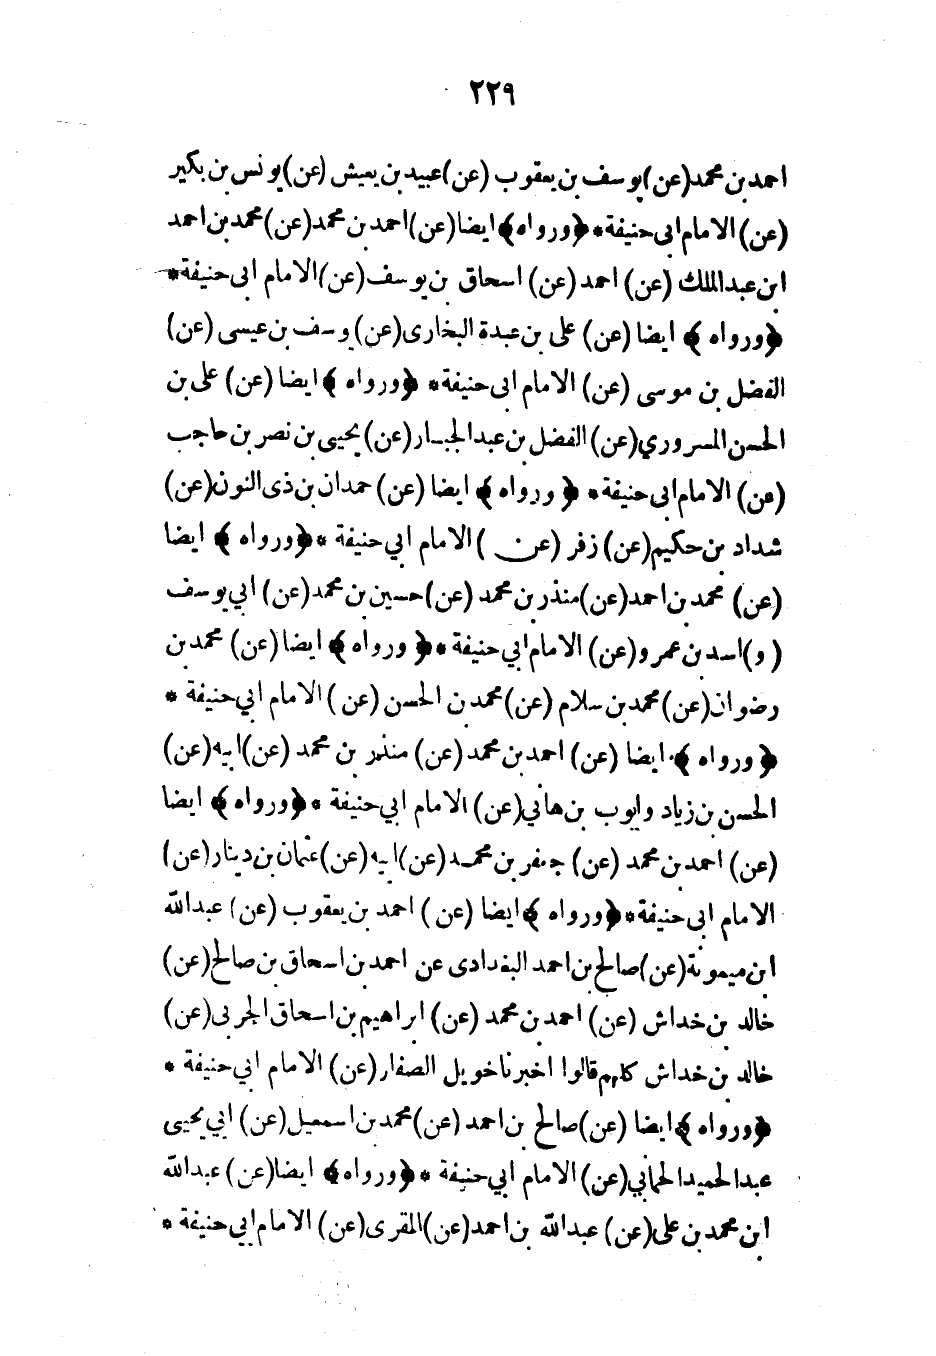 ٢٢٩
احمد بن محمد (عن) يوسف بن يعقوب (عن) عبيد بن يعيش (عن) يونس بن بكير
(عن) الامام ابى حنيفة * ﴿ورواه﴾ ايضا (عن) احمد بن محمد (عن) محمد بن احمد
ابن عبد الملك (عن) احمد (عن) اسحاق بن يوسف (عن) الامام ابى حنيفة *
﴿ورواه﴾ ايضا (عن) على بن عبدة البخارى (عن) يوسف بن عيسى (عن)
الفضل بن موسى (عن) الامام ابى حنيفة * ﴿ورواه﴾ ايضا (عن) على بن
الحسن المسروري (عن) الفضل بن عبد الجبار (عن) يحيى بن نصر بن حاجب
(عن) الامام ابى حنيفة * ﴿ورواه﴾ ايضا (عن) حمدان بن ذى النون (عن)
شداد بن حكيم (عن) زفر (عن) الامام ابي حنيفة * ﴿ورواه﴾ ايضا
(عن) محمد بن احمد (عن) منذر بن محمد (عن) حسين بن محمد (عن) ابي يوسف
(و) اسد بن عمرو (عن) الامام ابي حنيفة * ﴿ورواه﴾ ايضا (عن) محمد بن
رضوان (عن) محمد بن سلام (عن) محمد بن الحسن (عن) الامام ابي حنيفة *
﴿ورواه﴾ ايضا (عن) احمد بن محمد (عن) منذر بن محمد (عن) ابيه (عن)
الحسن بن زياد وايوب بن هاني (عن) الامام ابي حنيفة * ﴿ورواه﴾ ايضا
(عن) احمد بن محمد (عن) جعفر بن محمد (عن) ابيه (عن) عثمان بن دينار (عن)
الامام ابى حنيفة * ﴿ورواه﴾ ايضا (عن) احمد بن يعقوب (عن) عبدالله
ابن ميمونة (عن) صالح بن احمد البغدادى عن احمد بن اسحاق بن صالح (عن)
خالد بن خداش (عن) احمد بن محمد (عن) ابراهيم بن اسحاق الحربى (عن)
خالد بن خداش كلهم قالوا اخبرنا خويل الصفار (عن) الامام ابي حنيفة *
﴿ورواه﴾ ايضا (عن) صالح بن احمد (عن) محمد بن اسمعيل (عن) ابي يحيى
عبد الحميد الحماني (عن) الامام ابي حنيفة * ﴿ورواه﴾ ايضا (عن) عبدالله
ابن محمد بن على (عن) عبدالله بن احمد (عن) المقرى (عن) الامام ابي حنيفة *